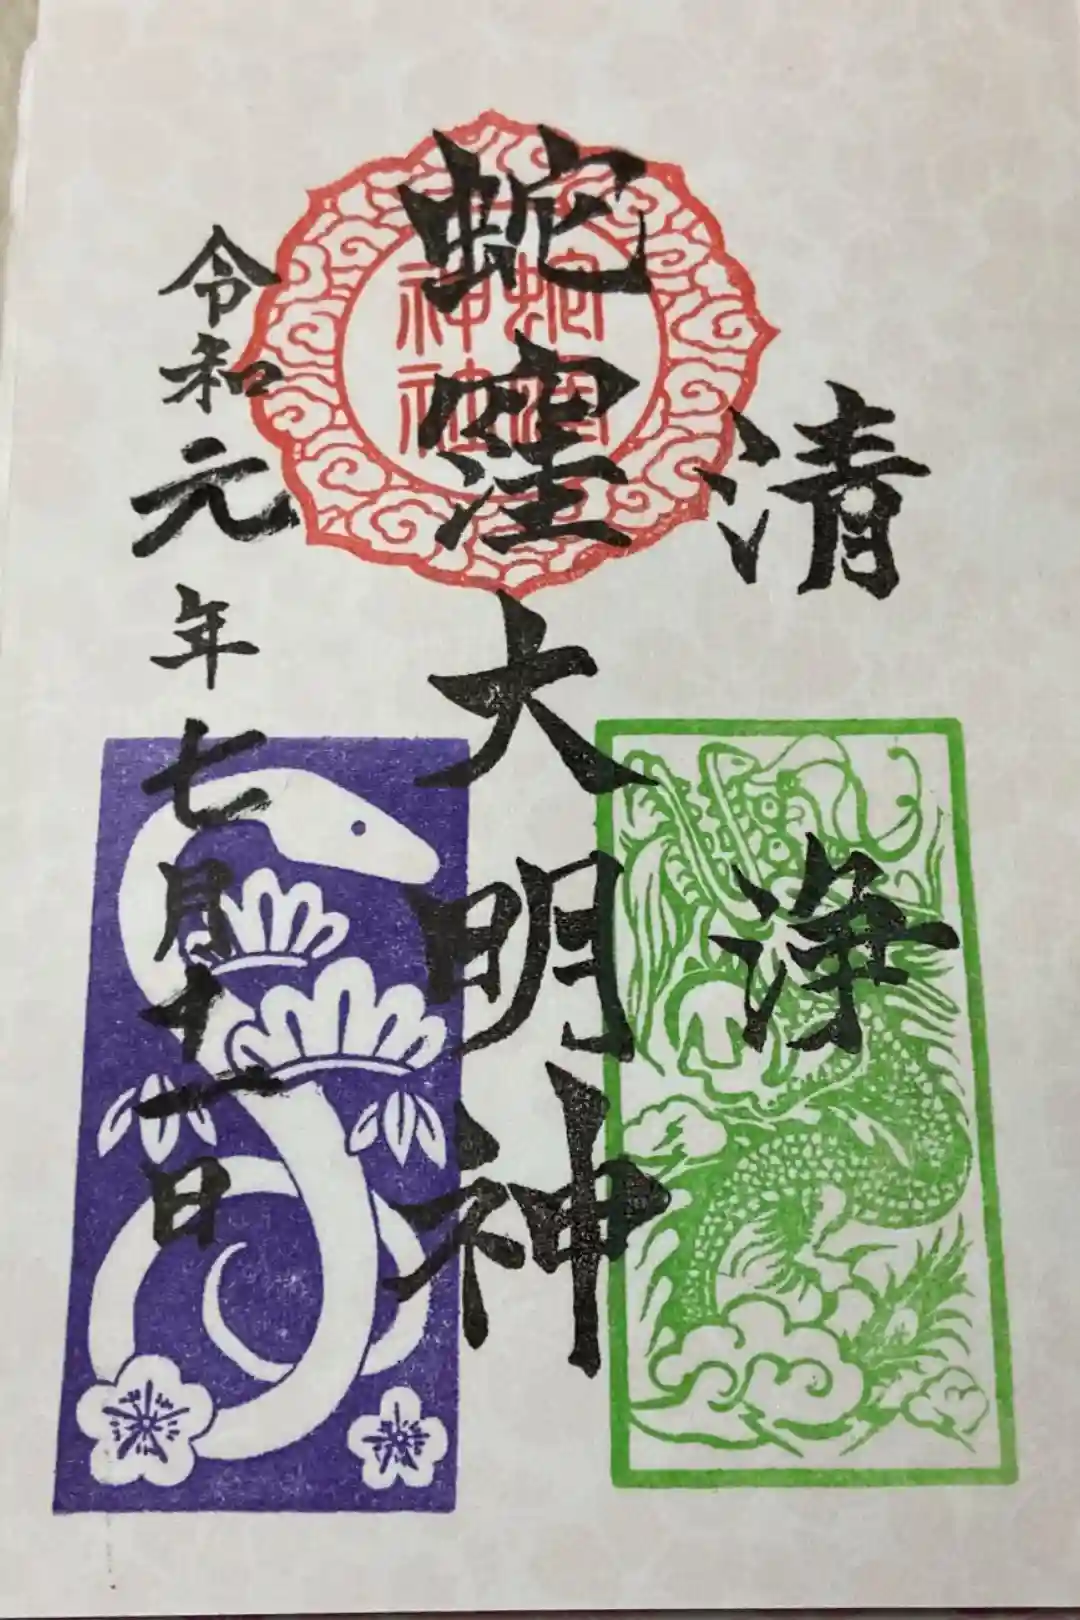 清浄
蛇窪大明神
蛇窪
神社
令和元年七月十一日